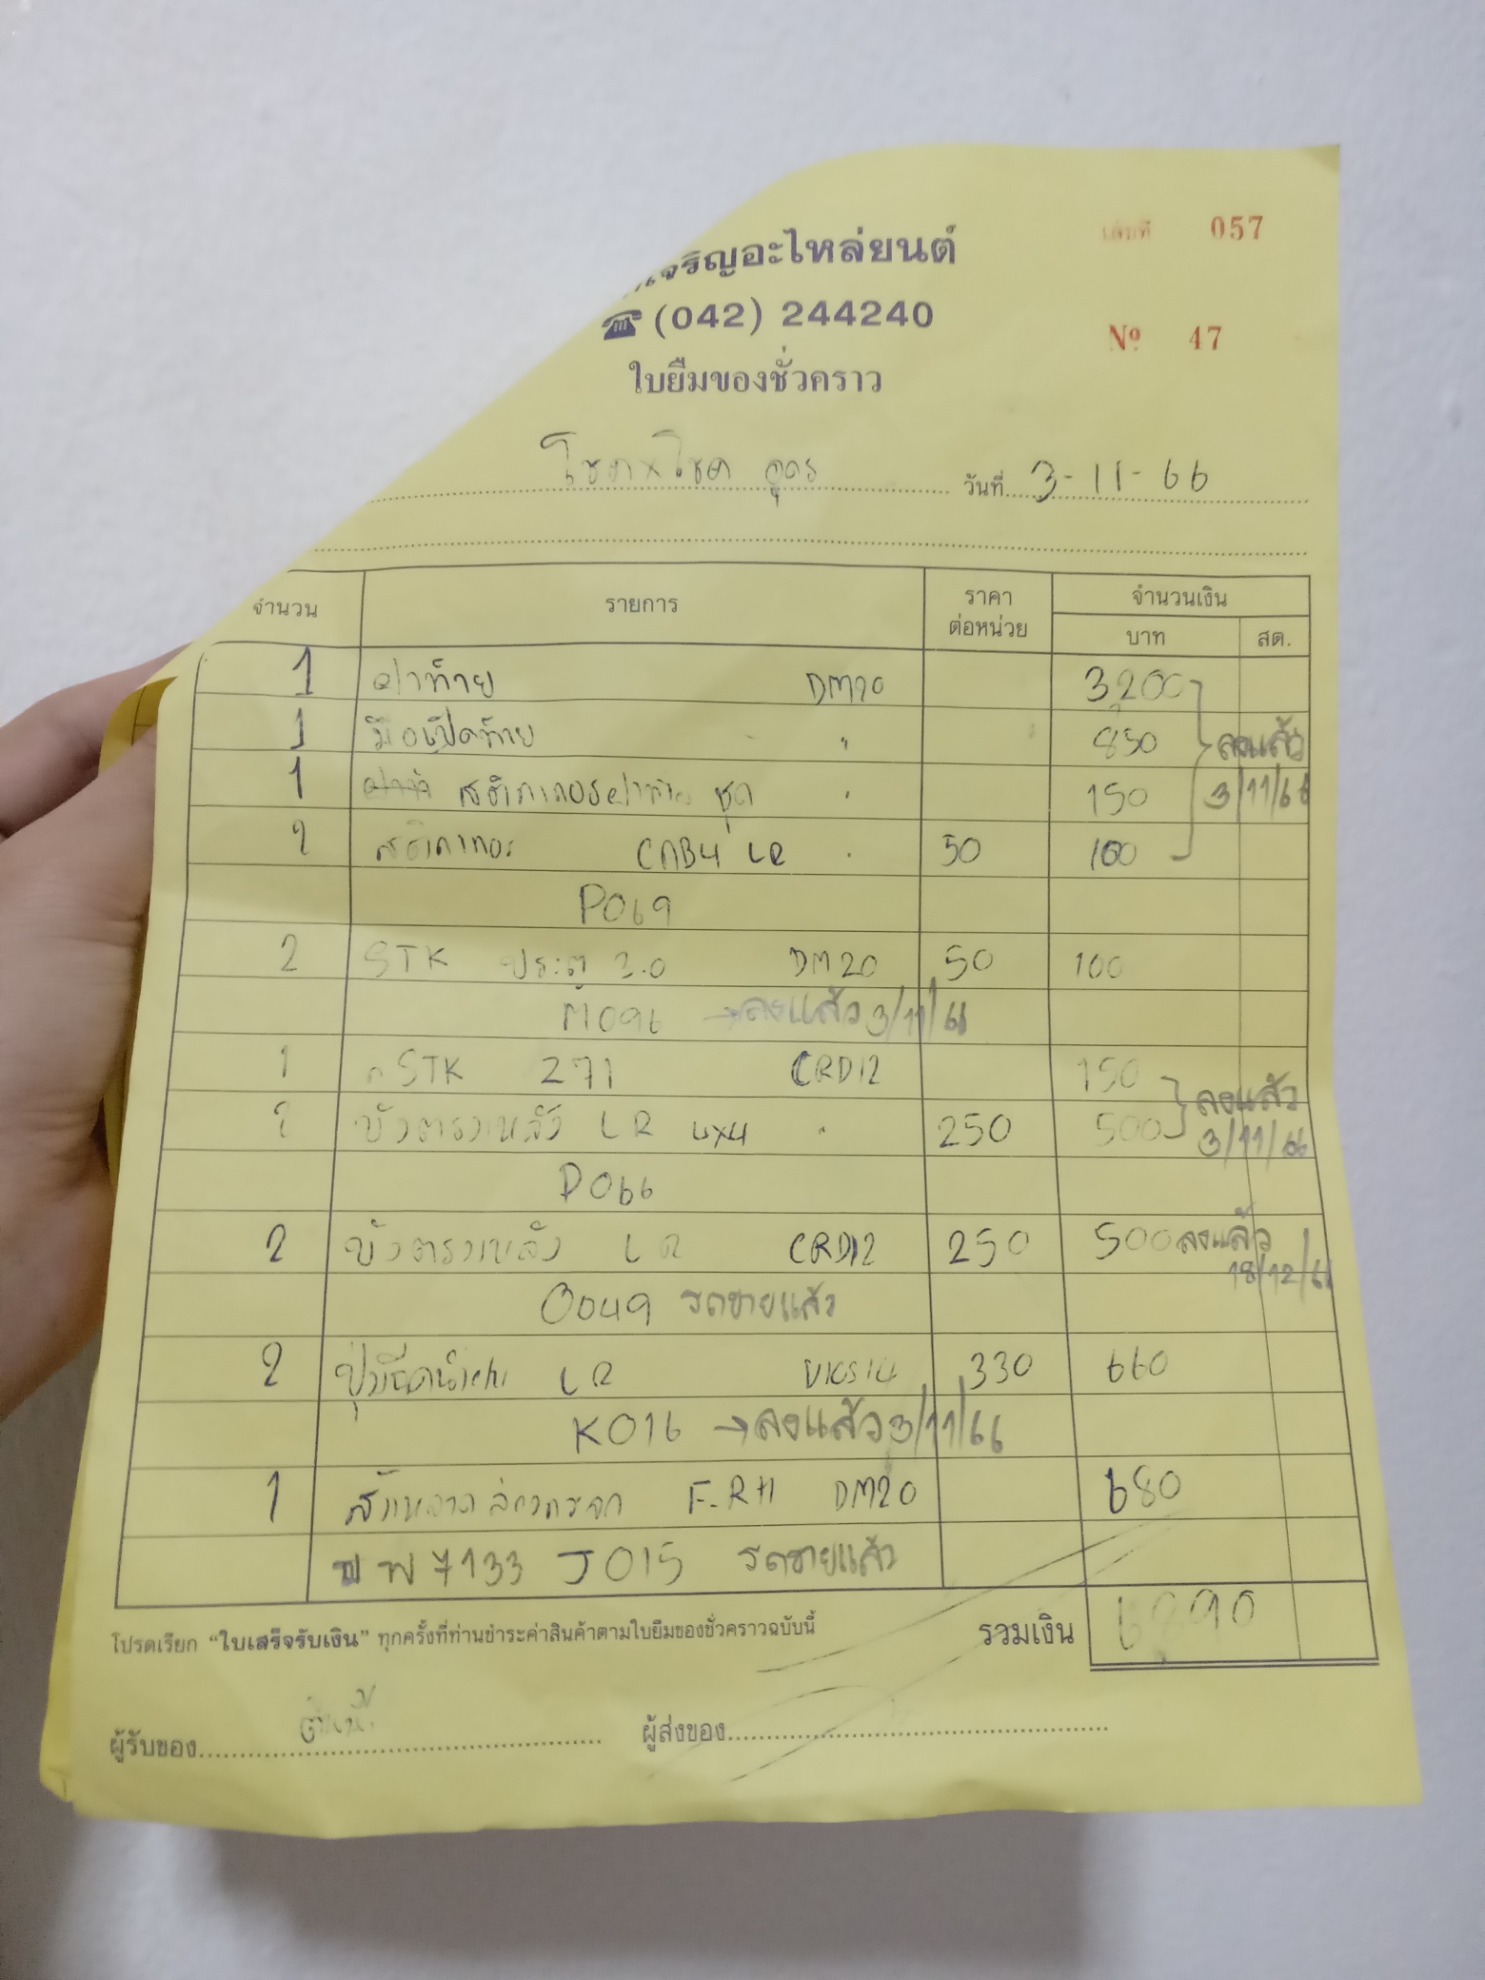 เจริญอะไหล่ยนต์
เลขที่ 057
☎ (042) 244240
Nº 47
ใบยืมของชั่วคราว
อุดร วันที่ 3-11-66
จำนวน รายการ ราคาต่อหน่วย จำนวนเงิน
บาท สต.
1 ฝาท้าย DM20 3,200
1 มือเปิดท้าย " 850 ลงแล้ว
1 สติกเกอร์ฝาท้าย ชุด " 150 3/11/66
2 CAB4 LR " 50 100
P069
2 STK ประตู 3.0 DM20 50 100
M096 → ลงแล้ว 3/11/66
1 STK 271 CRD12 150 ลงแล้ว
2 บังตรงหลัง LR 4x4 " 250 500 3/11/66
D066
2 บังตรงหลัง LR CRD12 250 500 ลงแล้ว
18/12/66
O049 รถขายแล้ว
2 LR 330 660
K016 → ลงแล้ว 3/11/66
1 F-RH DM20 680
7133 J015 รถขายแล้ว
โปรดเรียก "ใบเสร็จรับเงิน" ทุกครั้งที่ท่านชำระค่าสินค้าตามใบยืมของชั่วคราวฉบับนี้ รวมเงิน 6,890
ผู้รับของ ผู้ส่งของ